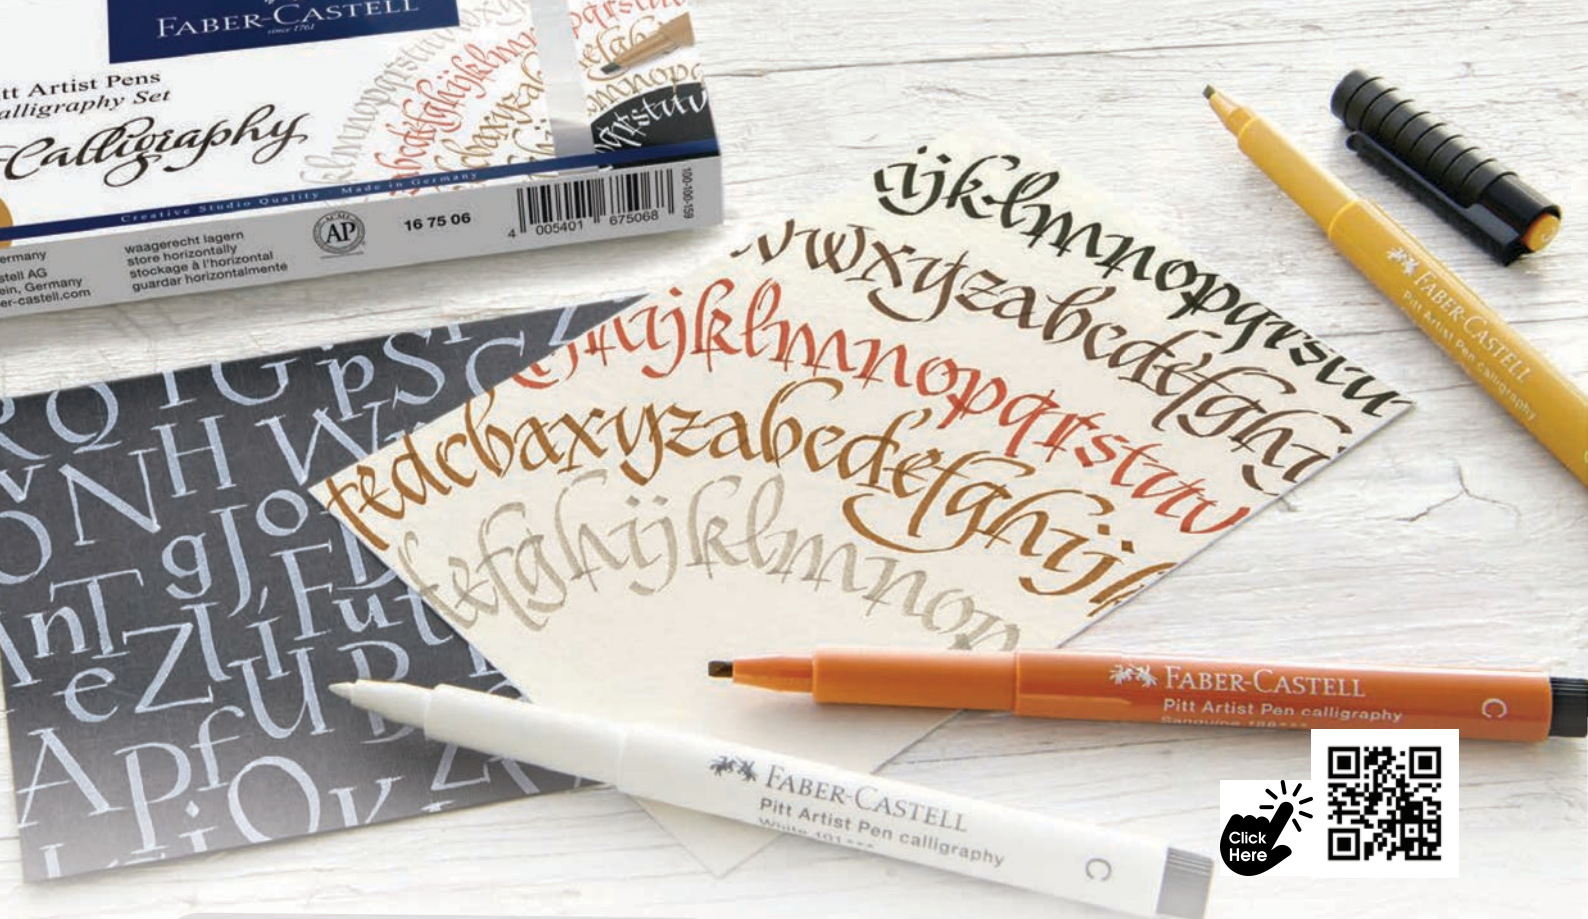 FABER-CASTELL
since 1761
tt Artist Pens
alligraphy Set
Calligraphy
Creative Studio Quality · Made in Germany
ermany
stell AG
ein, Germany
er-castell.com
waagerecht lagern
store horizontally
stockage à l'horizontal
guardar horizontalmente
AP
16 75 06
4 005401 675068
ijklmnopqrstu
vwxyzabcdefghi
hijklmnopqrstuv
fedcbaxyzabcdefghijk
efghijklmnop
FABER-CASTELL
Pitt Artist Pen calligraphy
FABER-CASTELL
Pitt Artist Pen calligraphy
C
FABER-CASTELL
Pitt Artist Pen calligraphy
White 101***
C
Click
Here